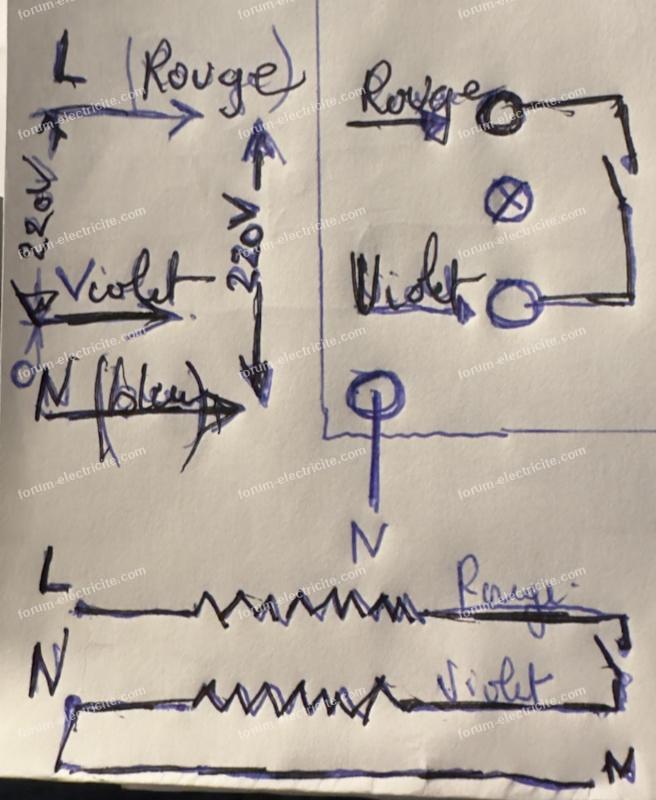 L (Rouge)
220V
220V
Violet
N (bleu)
Rouge
Violet
N
L
Rouge
N
Violet
N
forum-electricite.com